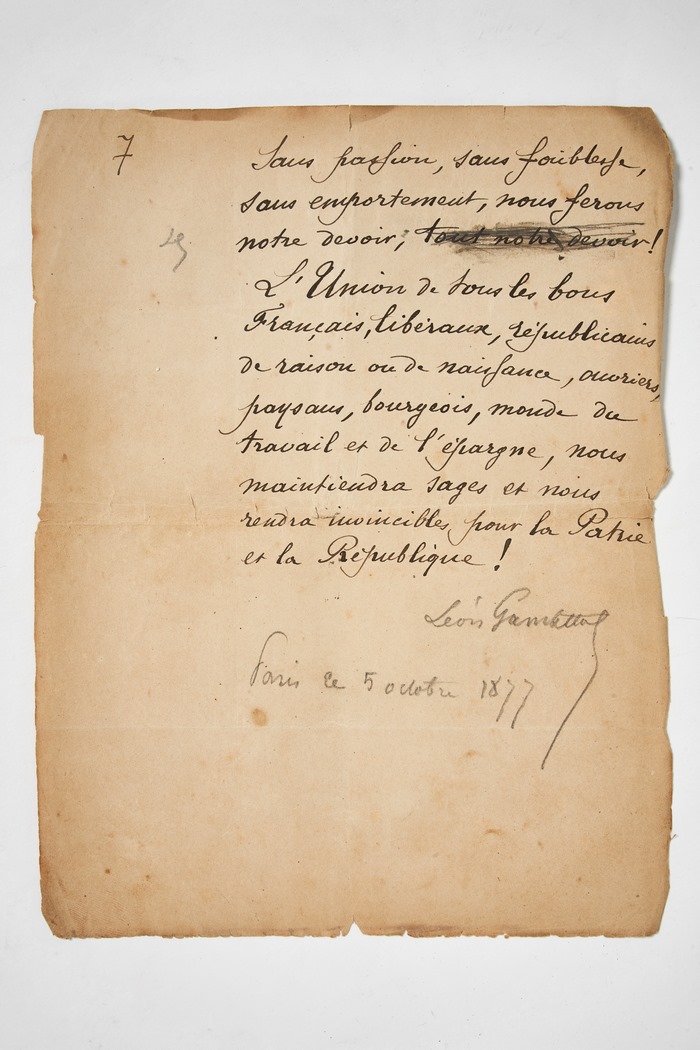 7
Sans passion, sans faiblesse,
sans emportement, nous ferons
notre devoir, tout notre devoir!
L'Union de tous les bons
Français, libéraux, républicains
de raison ou de naissance, ouvriers,
paysans, bourgeois, monde du
travail et de l'épargne, nous
maintiendra sages et nous
rendra invincibles pour la Patrie
et la République!
Léon Gambetta
Paris le 5 octobre 1877